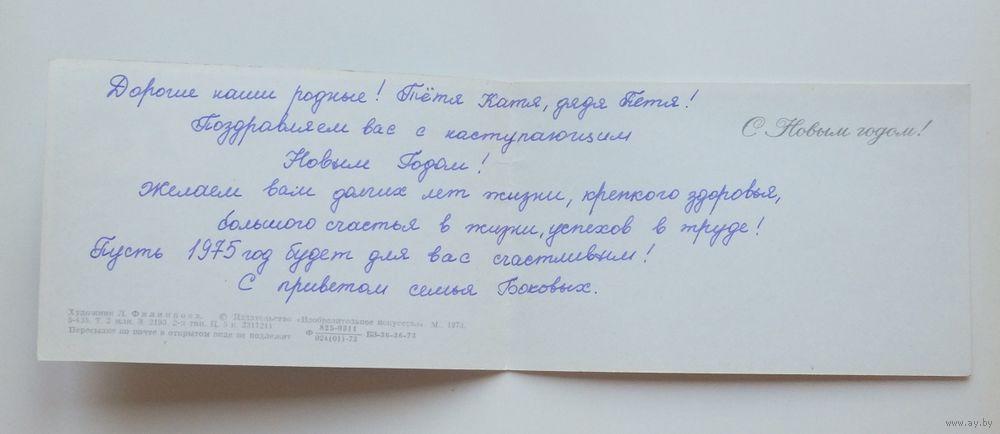 Дорогие наши родные! Тётя Катя, дядя Петя!
Поздравляем вас с наступающим
Новым Годом!
Желаем вам долгих лет жизни, крепкого здоровья,
большого счастья в жизни, успехов в труде!
Пусть 1975 год будет для вас счастливым!
С приветом семья Боковых.
С Новым годом!
Художник Л. Филиппова. © Издательство «Изобразительное искусство». М., 1973.
5-435. Т. 2 млн. З. 2193. 2-я тип. Ц. 5 к. 2317211
Пересылке по почте в открытом виде не подлежит
Ф 825-0311
024(01)-73 БЗ-36-36-73
www.ay.by